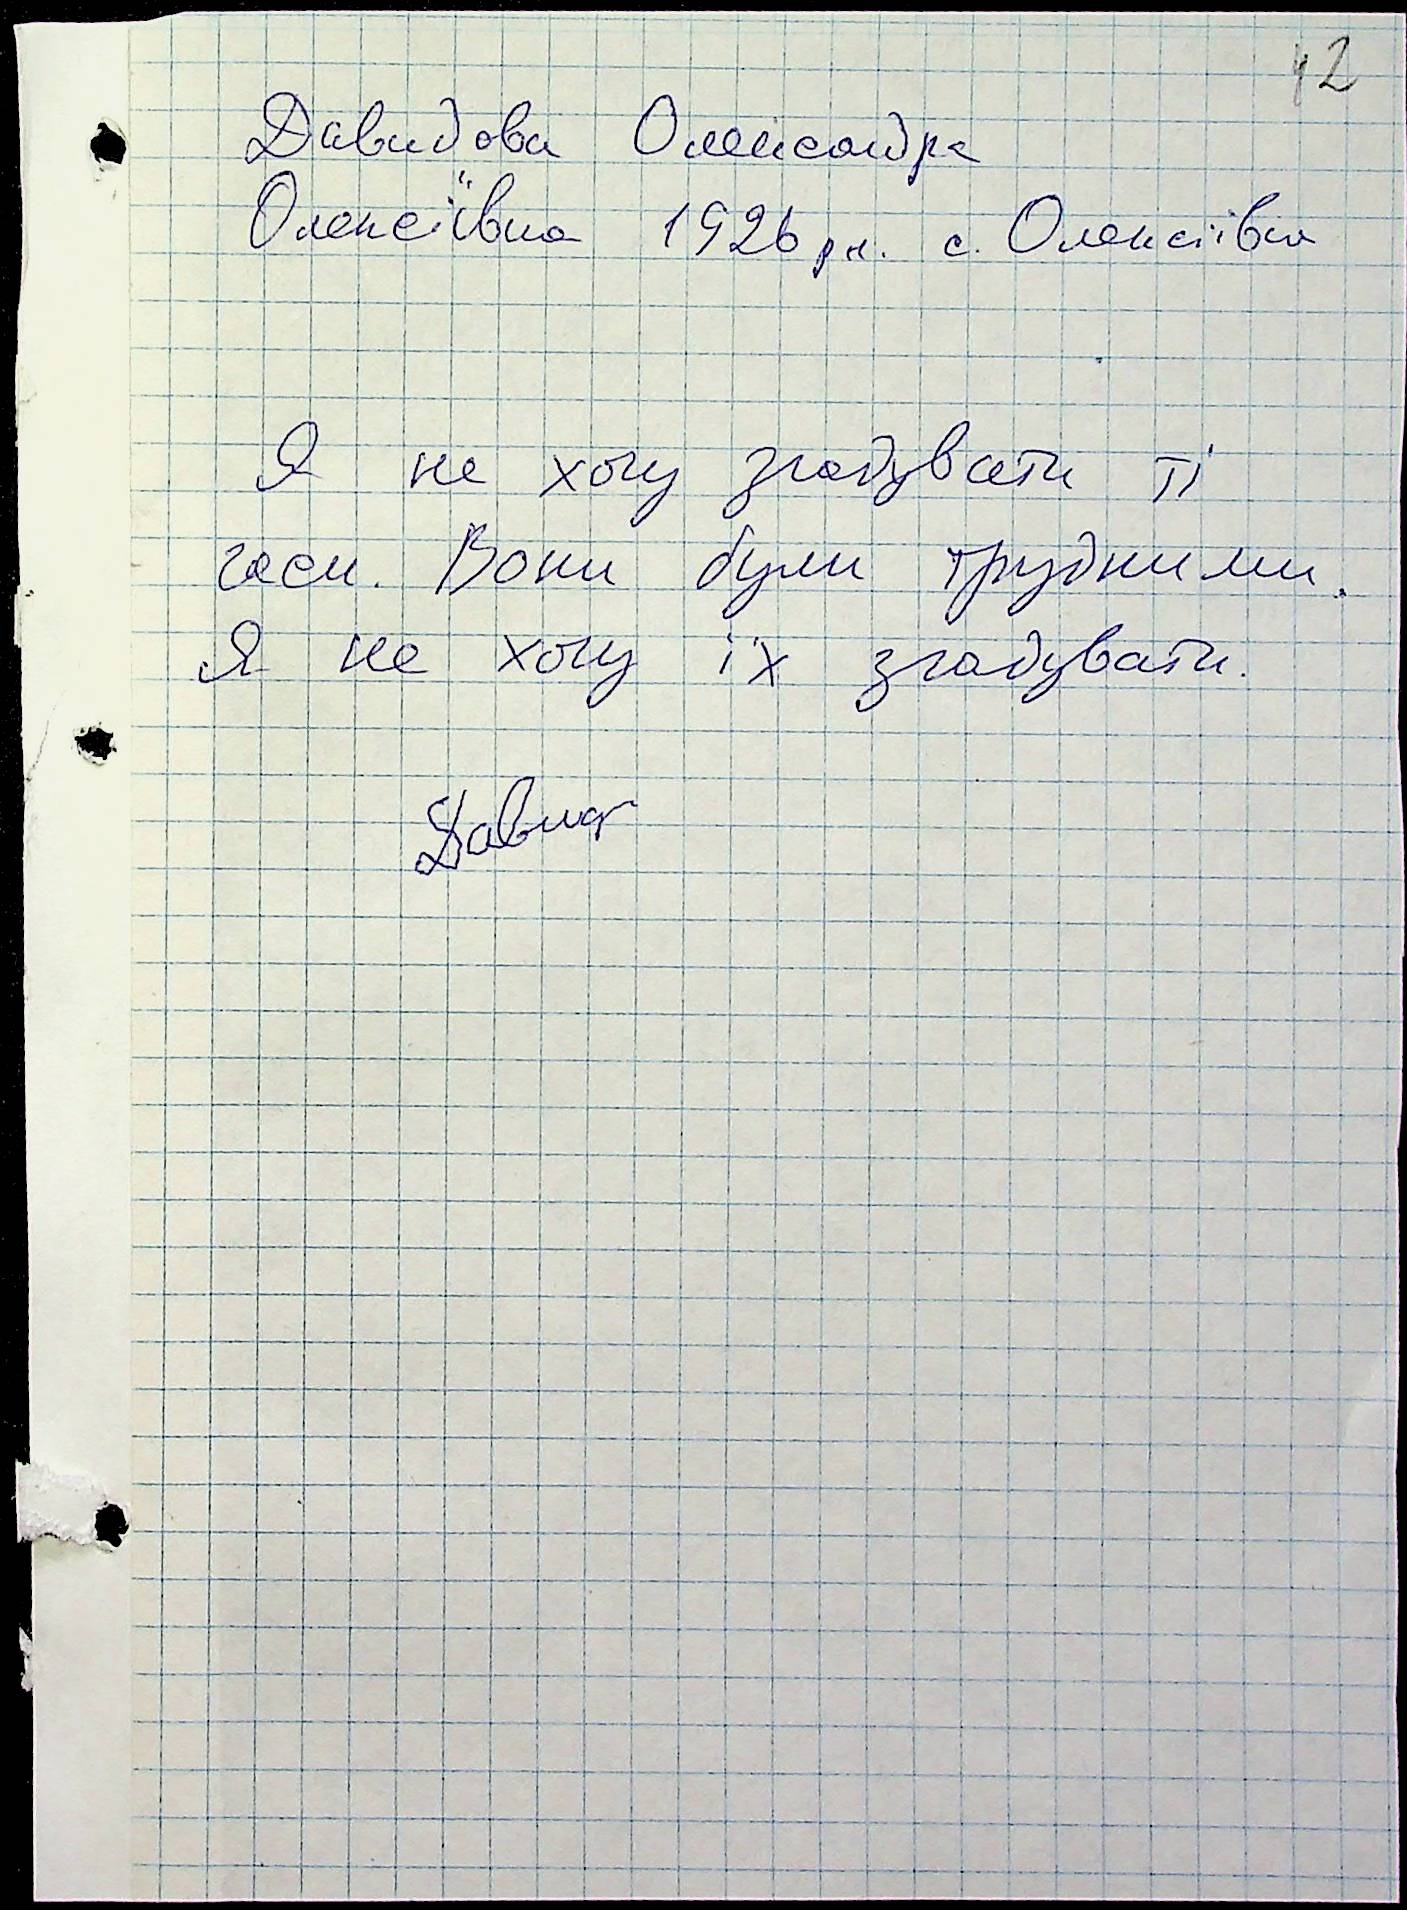 42
Давидова Олександра
Олексіївна 1926 рн. с. Олексіївка
Я не хочу згадувати ті
часи. Вони були трудними.
Я не хочу їх згадувати.
Давид